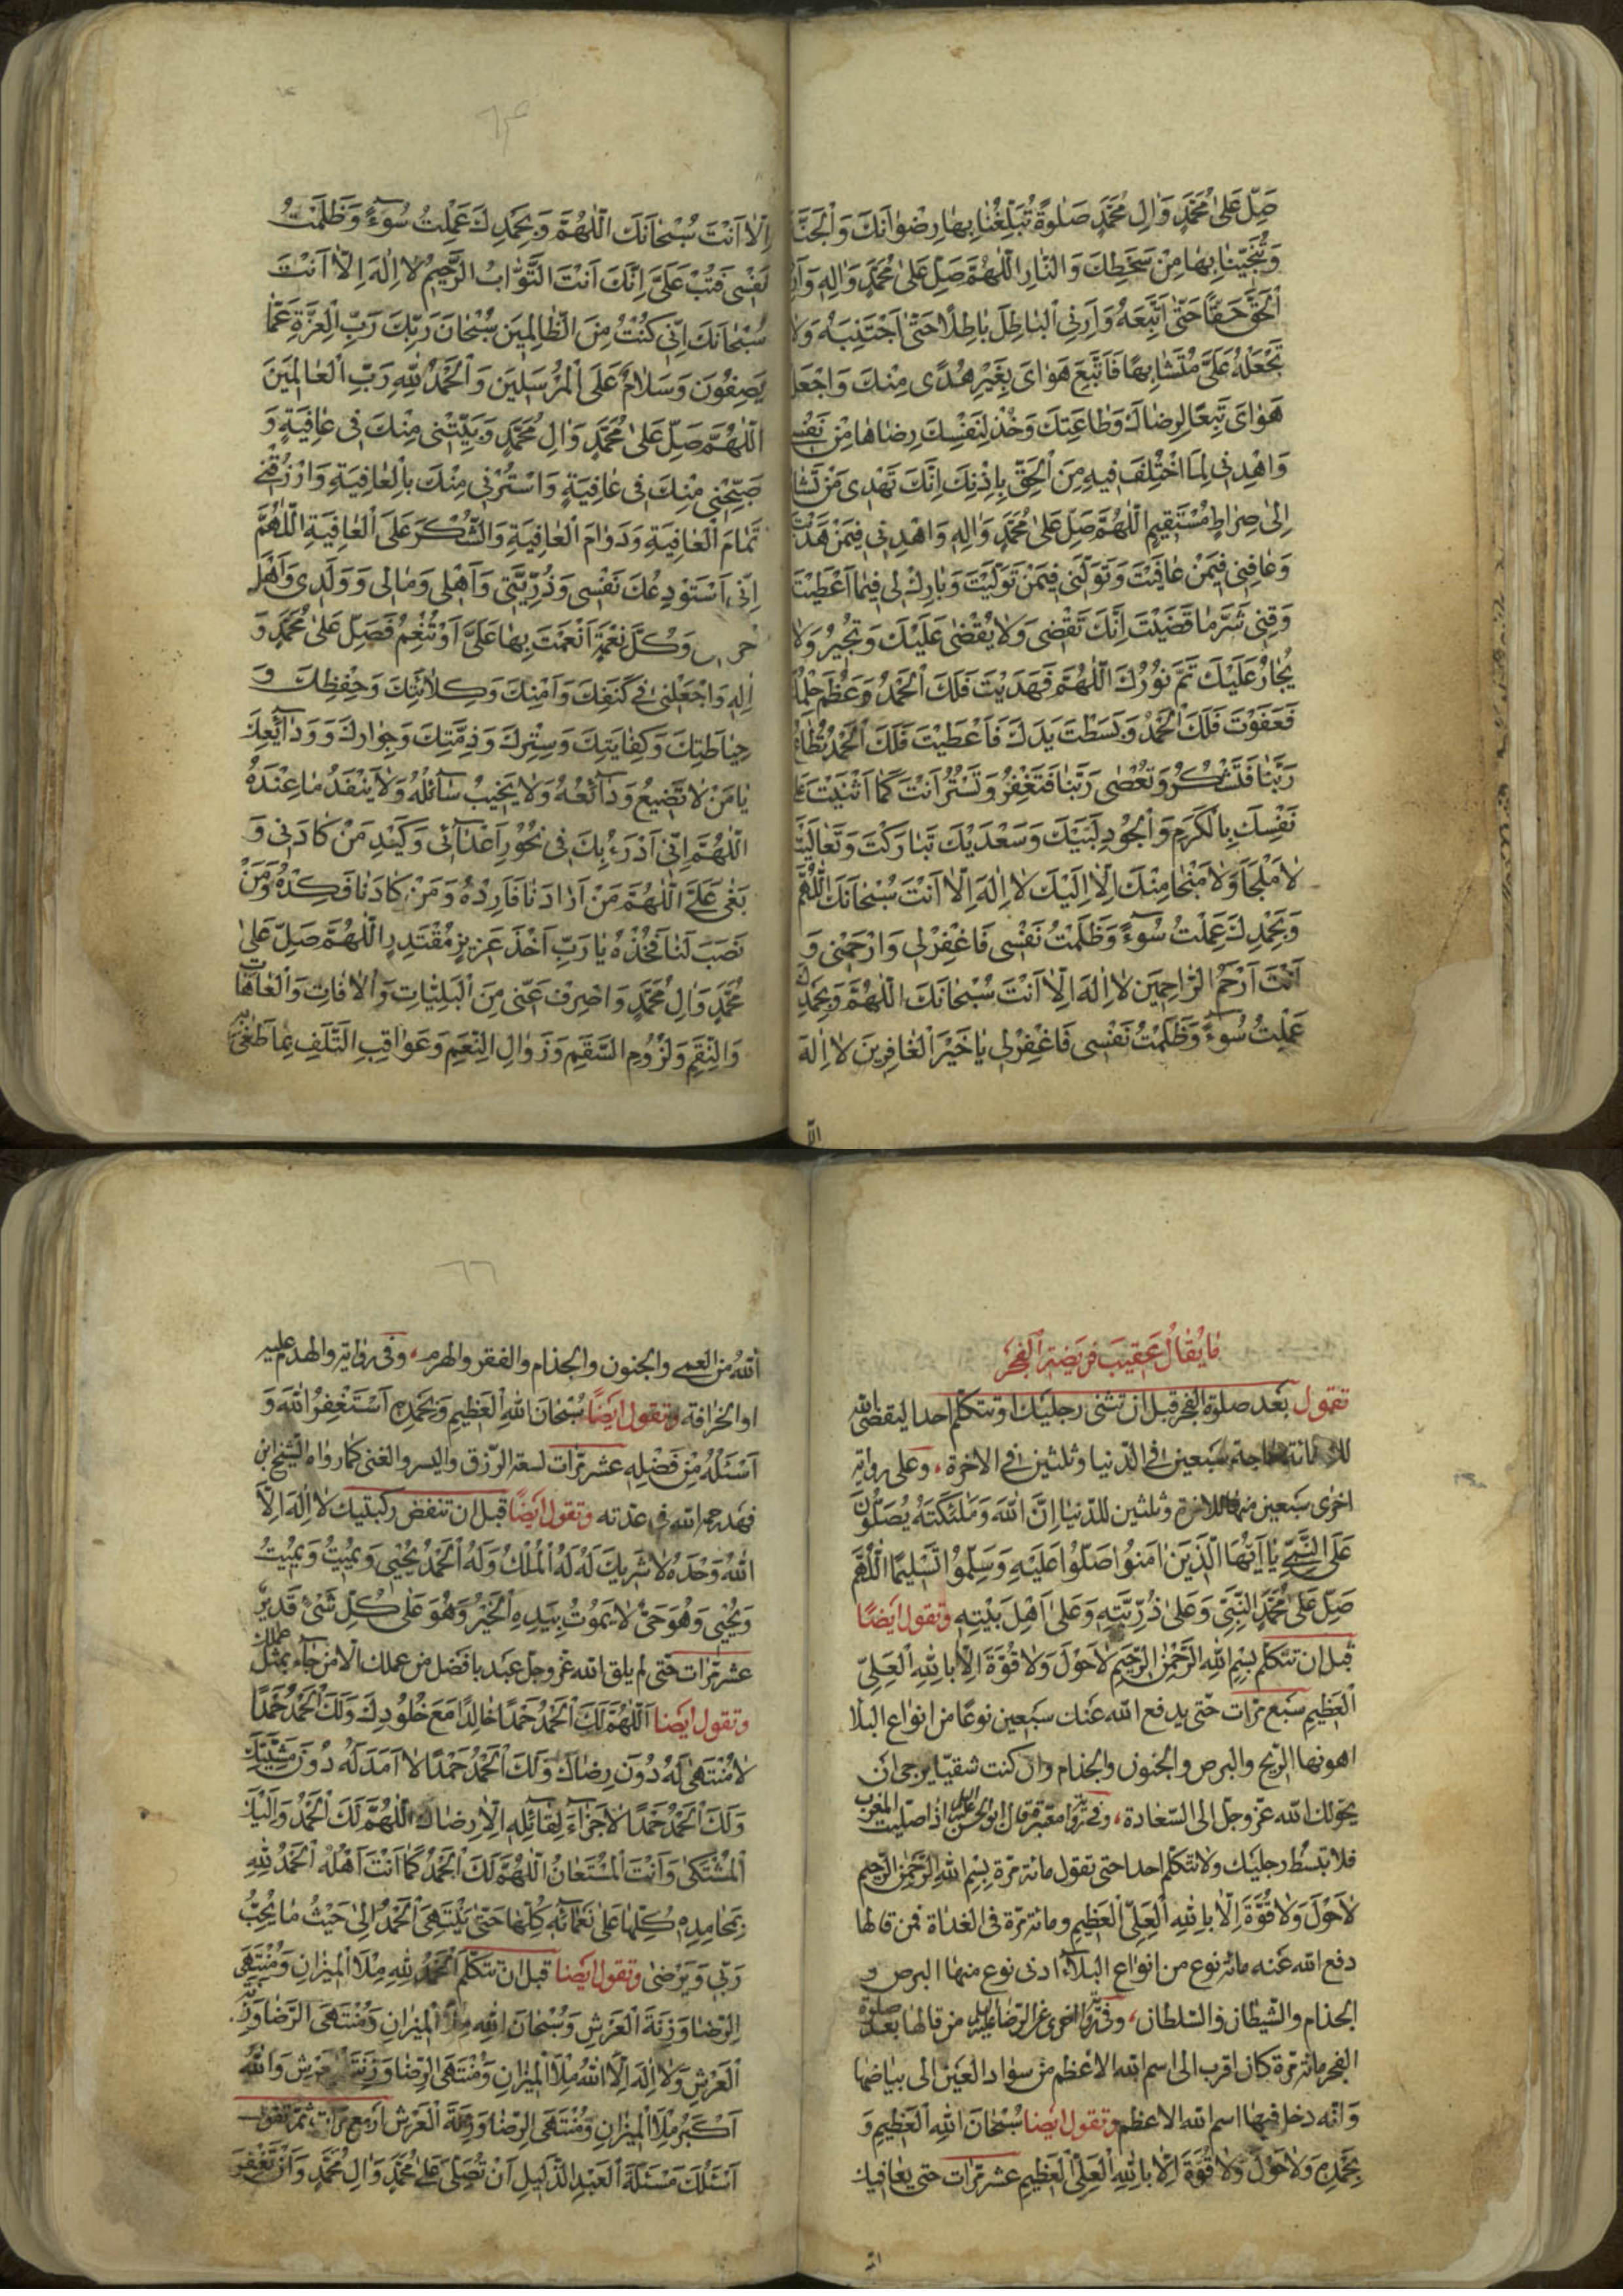 صَلِّ عَلىٰ مُحَمَّدٍ وَاٰلِ مُحَمَّدٍ صَلوٰةً تُبَلِّغُنٰا بِهٰا رِضْوٰانَكَ وَالْجَنَّةَ
وَتُنَجّينٰا بِهٰا مِنْ سَخَطِكَ وَالنّٰارِ اَللّٰهُمَّ صَلِّ عَلىٰ مُحَمَّدٍ وَاٰلِهِ وَاَرِنِى
الْحَقَّ حَقًّا حَتّىٰ اَتَّبِعَهُ وَاَرِنِى الْبٰاطِلَ بٰاطِلًا حَتّىٰ اَجْتَنِبَهُ وَلٰا
تَجْعَلْهُ عَلَىَّ مُتَشٰابِهًا فَاَتَّبِعَ هَوٰاىَ بِغَيْرِ هُدًى مِنْكَ وَاجْعَلْ
هَوٰاىَ تَبَعًا لِرِضٰاكَ وَطٰاعَتِكَ وَخُذْ لِنَفْسِكَ رِضٰاهٰا مِنْ نَفْسى
وَاهْدِنى لِمَا اخْتُلِفَ فيهِ مِنَ الْحَقِّ بِاِذْنِكَ اِنَّكَ تَهْدى مَنْ تَشٰاءُ
اِلىٰ صِرٰاطٍ مُسْتَقيمٍ اَللّٰهُمَّ صَلِّ عَلىٰ مُحَمَّدٍ وَاٰلِهِ وَاهْدِنى فيمَنْ هَدَيْتَ
وَعٰافِنى فيمَنْ عٰافَيْتَ وَتَوَلَّنى فيمَنْ تَوَلَّيْتَ وَبٰارِكْ لى فيمٰا اَعْطَيْتَ
وَقِنى شَرَّ مٰا قَضَيْتَ اِنَّكَ تَقْضى وَلٰا يُقْضىٰ عَلَيْكَ وَتُجيرُ وَلٰا
يُجٰارُ عَلَيْكَ تَمَّ نُورُكَ اللّٰهُمَّ فَهَدَيْتَ فَلَكَ الْحَمْدُ وَعَظُمَ حِلْمُكَ
فَعَفَوْتَ فَلَكَ الْحَمْدُ وَبَسَطْتَ يَدَكَ فَاَعْطَيْتَ فَلَكَ الْحَمْدُ تُطٰاعُ
رَبَّنٰا فَتَشْكُرُ وَتُعْصىٰ رَبَّنٰا فَتَغْفِرُ وَتَسْتُرُ اَنْتَ كَمٰا اَثْنَيْتَ عَلىٰ
نَفْسِكَ بِالْكَرَمِ وَالْجُودِ لَبَّيْكَ وَسَعْدَيْكَ تَبٰارَكْتَ وَتَعٰالَيْتَ
لٰا مَلْجَأَ وَلٰا مَنْجٰا مِنْكَ اِلّٰا اِلَيْكَ لٰا اِلٰهَ اِلّٰا اَنْتَ سُبْحٰانَكَ اللّٰهُمَّ
وَبِحَمْدِكَ عَمِلْتُ سُوءً وَظَلَمْتُ نَفْسى فَاغْفِرْ لى وَارْحَمْنى وَ
اَنْتَ اَرْحَمُ الرّٰاحِمينَ لٰا اِلٰهَ اِلّٰا اَنْتَ سُبْحٰانَكَ اللّٰهُمَّ وَبِحَمْدِكَ
عَمِلْتُ سُوءً وَظَلَمْتُ نَفْسى فَاغْفِرْ لى يٰا خَيْرَ الْغٰافِرينَ لٰا اِلٰهَ
الّا
اِلّٰا اَنْتَ سُبْحٰانَكَ اللّٰهُمَّ وَبِحَمْدِكَ عَمِلْتُ سُوءً وَظَلَمْتُ
نَفْسى فَتُبْ عَلَىَّ اِنَّكَ اَنْتَ التَّوّٰابُ الرَّحيمُ لٰا اِلٰهَ اِلّٰا اَنْتَ
سُبْحٰانَكَ اِنّى كُنْتُ مِنَ الظّٰالِمينَ سُبْحٰانَ رَبِّكَ رَبِّ الْعِزَّةِ عَمّٰا
يَصِفُونَ وَسَلٰامٌ عَلَى الْمُرْسَلينَ وَالْحَمْدُ لِلّٰهِ رَبِّ الْعٰالَمينَ
اَللّٰهُمَّ صَلِّ عَلىٰ مُحَمَّدٍ وَاٰلِ مُحَمَّدٍ وَبَيِّتْنى مِنْكَ فى عٰافِيَةٍ وَ
صَبِّحْنى مِنْكَ فى عٰافِيَةٍ وَاسْتُرْنى مِنْكَ بِالْعٰافِيَةِ وَارْزُقْنى
تَمٰامَ الْعٰافِيَةِ وَدَوٰامَ الْعٰافِيَةِ وَالشُّكْرَ عَلَى الْعٰافِيَةِ اَللّٰهُمَّ
اِنّى اَسْتَوْدِعُكَ نَفْسى وَذُرِّيَّتى وَاَهْلى وَمٰالى وَوَلَدى وَاَهْلَ
وَكُلَّ نِعْمَةٍ اَنْعَمْتَ بِهٰا عَلَىَّ اَوْ تُنْعِمُ فَصَلِّ عَلىٰ مُحَمَّدٍ وَ
اٰلِهِ وَاجْعَلْنى فى كَنَفِكَ وَاَمْنِكَ وَكِلٰائَتِكَ وَحِفْظِكَ وَ
حِيٰاطَتِكَ وَكِفٰايَتِكَ وَسِتْرِكَ وَذِمَّتِكَ وَجِوٰارِكَ وَوَدٰائِعِكَ
يٰا مَنْ لٰا تَضيعُ وَدٰائِعُهُ وَلٰا يَخيبُ سٰائِلُهُ وَلٰا يَنْفَدُ مٰا عِنْدَهُ
اَللّٰهُمَّ اِنّى اَدْرَءُ بِكَ فى نُحُورِ اَعْدٰائى وَكَيْدِ مَنْ كٰادَنى وَ
بَغىٰ عَلَىَّ اَللّٰهُمَّ مَنْ اَرٰادَنٰا فَاَرِدْهُ وَمَنْ كٰادَنٰا فَكِدْهُ وَمَنْ
نَصَبَ لَنٰا فَخُذْهُ يٰا رَبِّ اَخْذَ عَزيزٍ مُقْتَدِرٍ اَللّٰهُمَّ صَلِّ عَلىٰ
مُحَمَّدٍ وَاٰلِ مُحَمَّدٍ وَاصْرِفْ عَنّى مِنَ الْبَلِيّٰاتِ وَالْاٰفٰاتِ وَالْعٰاهٰاتِ
وَالنِّقَمِ وَلُزُومِ السَّقَمِ وَزَوٰالِ النِّعَمِ وَعَوٰاقِبِ التَّلَفِ مٰا طَغىٰ
مٰا يُقٰالُ عَقيبَ فَريضَةِ الْفَجْرِ
تقول بَعد صلوة الفجر قبل ان تثنى رجليك او تتكلم احدا ليقضى الله
لك مائة حاجة سَبعين فى الدّنيا وثلثين فى الاخرة، وعلى رواية
اخرى سَبعين منها للاخرة وثلثين للدّنيا اِنَّ اللّٰهَ وَمَلٰئِكَتَهُ يُصَلُّونَ
عَلَى النَّبِىِّ يٰا اَيُّهَا الَّذينَ اٰمَنُوا صَلُّوا عَلَيْهِ وَسَلِّمُوا تَسْليمًا اَللّٰهُمَّ
صَلِّ عَلىٰ مُحَمَّدٍ النَّبِىِّ وَعَلىٰ ذُرِّيَّتِهِ وَعَلىٰ اَهْلِ بَيْتِهِ وتقول ايضًا
قبل ان تتكلّم بِسْمِ اللّٰهِ الرَّحْمٰنِ الرَّحيمِ لٰا حَوْلَ وَلٰا قُوَّةَ اِلّٰا بِاللّٰهِ الْعَلِىِّ
الْعَظيمِ سَبع مرّات حتّى يدفع الله عَنك سَبعين نوعًا من انواع البلا
اهونها الرّيح والبرص والجنون والجذام وان كنت شقيّا يرجى ان
يحوّلك الله عزّ وجلّ الى السّعادة، وفى رواية معتبرة قال ابو الحسن عليه السلام اذا صلّيت المغرب
فلا تبسُط رجليك ولا تتكلّم احدا حتى تقول مائة مرّة بِسْمِ اللّٰهِ الرَّحْمٰنِ الرَّحيمِ
لٰا حَوْلَ وَلٰا قُوَّةَ اِلّٰا بِاللّٰهِ الْعَلِىِّ الْعَظيمِ ومائة مرّة فى الغداة فمن قالها
دفع الله عَنه مائة نوع من انواع البلاء ادنى نوع منها البرص و
الجذام والشّيطان والسّلطان، وفى رواية اخرى عن الرّضا عليه السلام من قالها بعد صلوة
الفجر مائة مرّة كان اقرب الى اسم الله الاعظم من سواد العَين الى بياضها
وَانّه دخل فيها اسم الله الاعظم وتقول ايضا سُبْحٰانَ اللّٰهِ الْعَظيمِ وَ
بِحَمْدِهِ وَلٰا حَوْلَ وَلٰا قُوَّةَ اِلّٰا بِاللّٰهِ الْعَلِىِّ الْعَظيمِ عشر مرّات حتى يعافيك
الله
اللهُ من العمى والجنون والجذام والفقر والهرم، وفى رواية والهدم عليه
او الخرافة وتقول ايضًا سُبْحٰانَ اللّٰهِ الْعَظيمِ وَبِحَمْدِهِ اَسْتَغْفِرُ اللّٰهَ وَ
اَسْئَلُهُ مِنْ فَضْلِهِ عشر مرّات لسعة الرّزق واليسر والغنى كما رواه الشّيخ ابن
فهد رحمه الله فى عدّته وتقول ايضًا قبل ان تنفض ركبتيك لٰا اِلٰهَ اِلَّا
اللّٰهُ وَحْدَهُ لٰا شَريكَ لَهُ لَهُ الْمُلْكُ وَلَهُ الْحَمْدُ يُحْيى وَيُميتُ وَيُميتُ
وَيُحْيى وَهُوَ حَىٌّ لٰا يَمُوتُ بِيَدِهِ الْخَيْرُ وَهُوَ عَلىٰ كُلِّ شَىْءٍ قَديرٌ
عشر مرّات حتى لم يلق الله عزّ وجلّ عَبد بافضل من عملك الا من جاء بمثل عملك
وتقول ايضا اَللّٰهُمَّ لَكَ الْحَمْدُ حَمْدًا خٰالِدًا مَعَ خُلُودِكَ وَلَكَ الْحَمْدُ حَمْدًا
لٰا مُنْتَهىٰ لَهُ دُونَ رِضٰاكَ وَلَكَ الْحَمْدُ حَمْدًا لٰا اَمَدَ لَهُ دُونَ مَشِيَّتِكَ
وَلَكَ الْحَمْدُ حَمْدًا لٰا جَزٰاءَ لِقٰائِلِهِ اِلّٰا رِضٰاكَ اَللّٰهُمَّ لَكَ الْحَمْدُ وَاِلَيْكَ
الْمُشْتَكىٰ وَاَنْتَ الْمُسْتَعٰانُ اَللّٰهُمَّ لَكَ الْحَمْدُ كَمٰا اَنْتَ اَهْلُهُ اَلْحَمْدُ لِلّٰهِ
بِمَحٰامِدِهِ كُلِّهٰا عَلىٰ نَعْمٰائِهِ كُلِّهٰا حَتّىٰ يَنْتَهِىَ الْحَمْدُ اِلىٰ حَيْثُ مٰا يُحِبُّ
رَبّى وَيَرْضىٰ وتقول ايضا قبل ان تتكلّم اَلْحَمْدُ لِلّٰهِ مِلْأَ الْميزٰانِ وَمُنْتَهَى
الرِّضٰا وَزِنَةَ الْعَرْشِ وَسُبْحٰانَ اللّٰهِ مِلْأَ الْميزٰانِ وَمُنْتَهَى الرِّضٰا وَزِنَةَ
الْعَرْشِ وَلٰا اِلٰهَ اِلَّا اللّٰهُ مِلْأَ الْميزٰانِ وَمُنْتَهَى الرِّضٰا وَزِنَةَ الْعَرْشِ وَاللّٰهُ
اَكْبَرُ مِلْأَ الْميزٰانِ وَمُنْتَهَى الرِّضٰا وَزِنَةَ الْعَرْشِ اربع مرّات ثمّ تقول
اَسْئَلُكَ مَسْئَلَةَ الْعَبْدِ الذَّليلِ اَنْ تُصَلِّىَ عَلىٰ مُحَمَّدٍ وَاٰلِ مُحَمَّدٍ وَاَنْ تَغْفِرَ